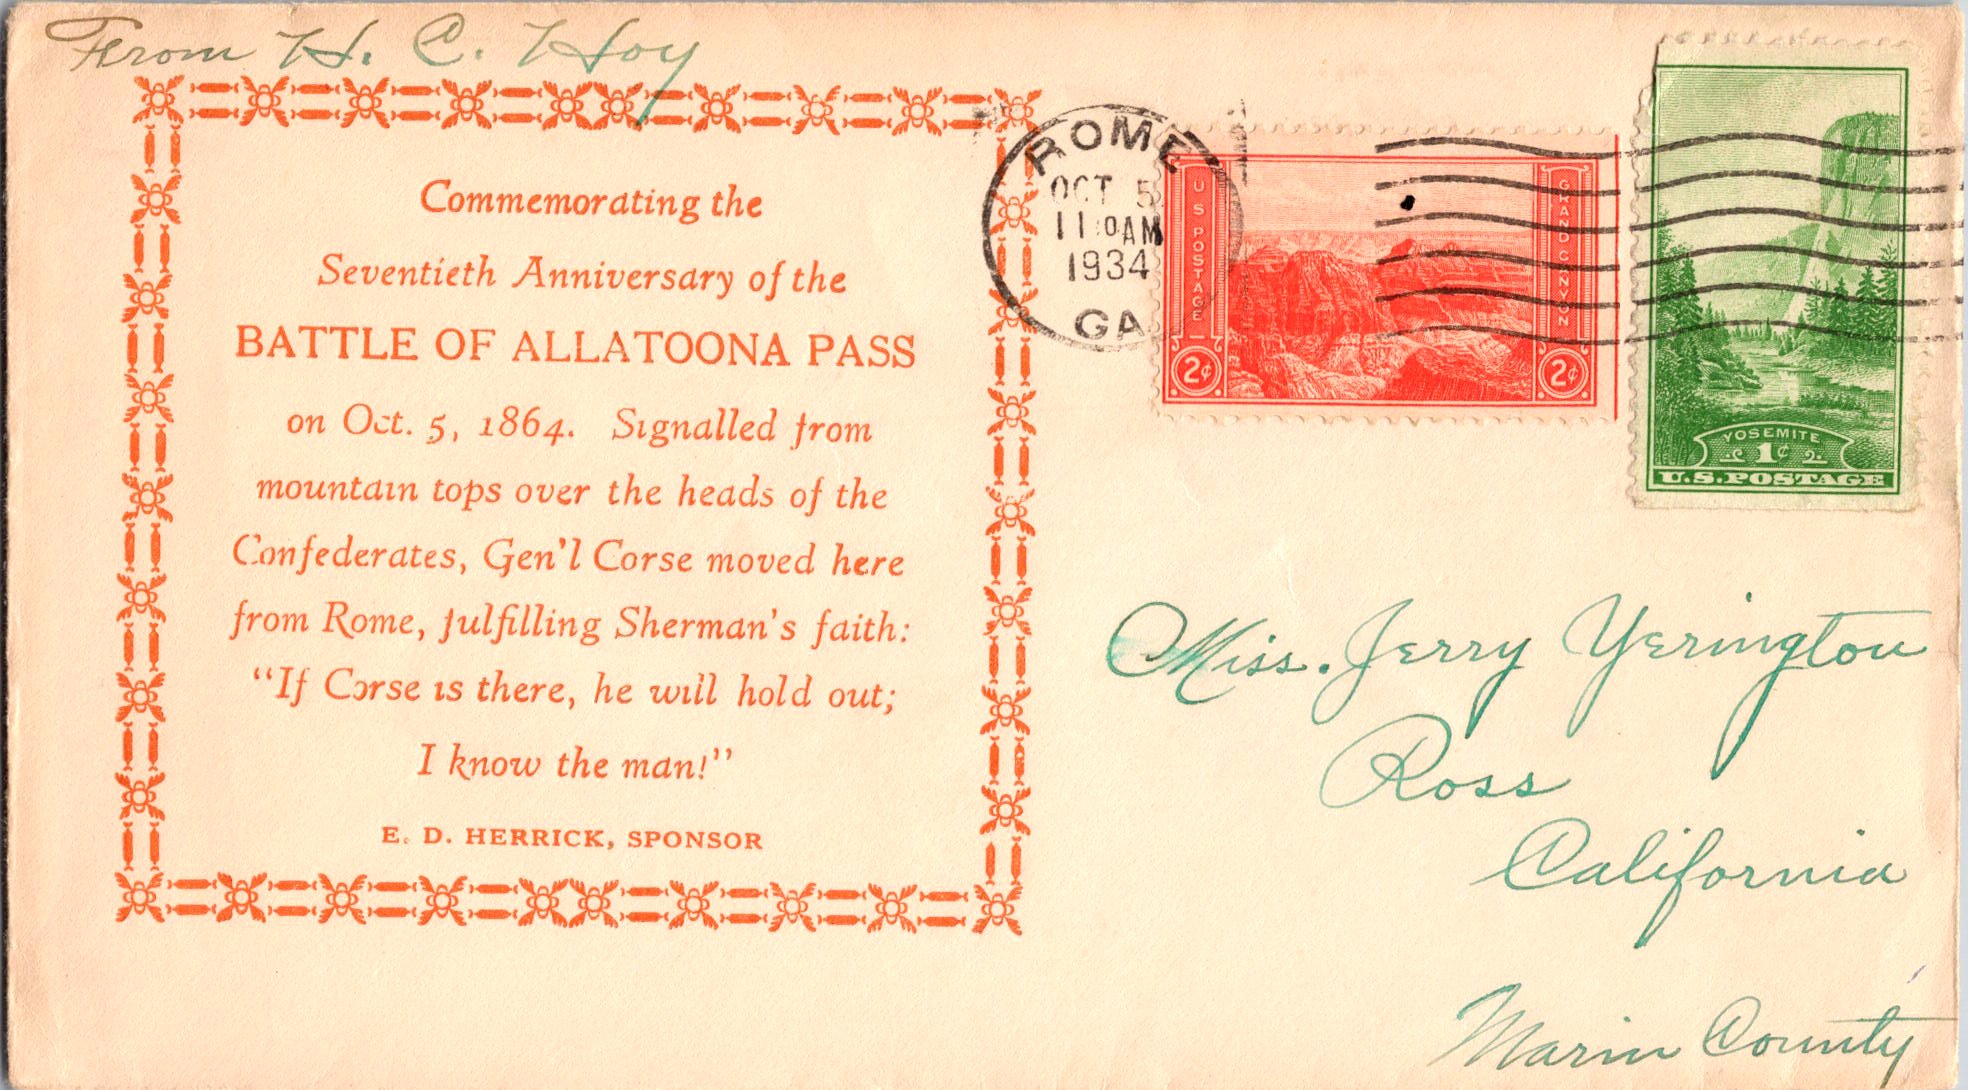 From H. C. Hoy
Commemorating the
Seventieth Anniversary of the
BATTLE OF ALLATOONA PASS
on Oct. 5, 1864. Signalled from
mountain tops over the heads of the
Confederates, Gen'l Corse moved here
from Rome, fulfilling Sherman's faith:
"If Corse is there, he will hold out;
I know the man!"
E. D. HERRICK, SPONSOR
ROME
OCT 5
11 0AM
1934
GA
U S POSTAGE
GRAND CANYON
2¢
2¢
YOSEMITE
1¢
U.S. POSTAGE
Miss. Jerry Yerington
Ross
California
Marin County